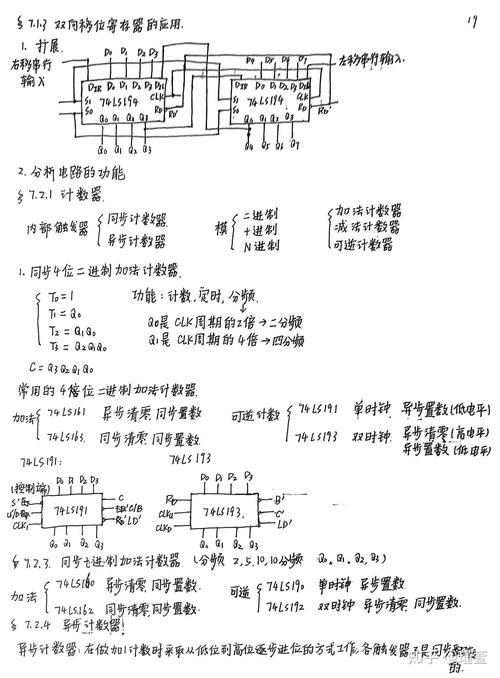 § 7.1.3 双向移位寄存器的应用.
19
1. 扩展.
右移串行
输入
D0 D1 D2 D3
DIR D0 D1 D2 D3 DIL
S1 CLK
S0 74LS194 RD
Q0 Q1 Q2 Q3
RD'
Q0 Q1 Q2 Q3
D4 D5 D6 D7
左移串行
输入.
DIR D0 D1 D2 D3 DIL
S1 CLK
S0 74LS194 RD
Q0 Q1 Q2 Q3
RD'
Q4 Q5 Q6 Q7
2. 分析电路的功能
§ 7.2.1 计数器.
内部触发器 同步计数器
异步计数器
模 二进制
十进制
N进制
加法计数器
减法计数器
可逆计数器
1. 同步4位二进制加法计数器.
T0=1
T1=Q0
T2=Q1Q0
T3=Q2Q1Q0
C=Q3Q2Q1Q0
功能:计数,定时,分频.
Q0是CLK周期的2倍→二分频
Q1是CLK周期的4倍→四分频
常用的4位二进制加法计数器.
加法 74LS161 异步清零,同步置数
74LS163. 同步清零,同步置数
可逆计数 74LS191 单时钟 异步置数(低电平)
74LS193 双时钟. 异步清零(高电平)
异步置数(低电平)
74LS191:
74LS193
(控制端)
D0 D1 D2 D3
C
74LS191
CLKI
LD'
Q0 Q1 Q2 Q3
D0 D1 D2 D3
RD
CLKU
CLKD
74LS193.
B'
C'
LD'
Q0 Q1 Q2 Q3
§ 7.2.3. 同步十进制加法计数器 (分频 2,5,10,10分频 Q0,Q1,Q2,Q3)
加法 74LS160 异步清零,同步置数.
74LS162 同步清零,同步置数.
可逆 74LS190 单时钟 异步置数.
74LS192 双时钟 异步清零,同步置数.
§ 7.2.4 异步计数器!
异步计数器:在做加1计数时采取从低位到高位逐步进位的方式工作,各触发器不是同步翻转
的.
知乎 @